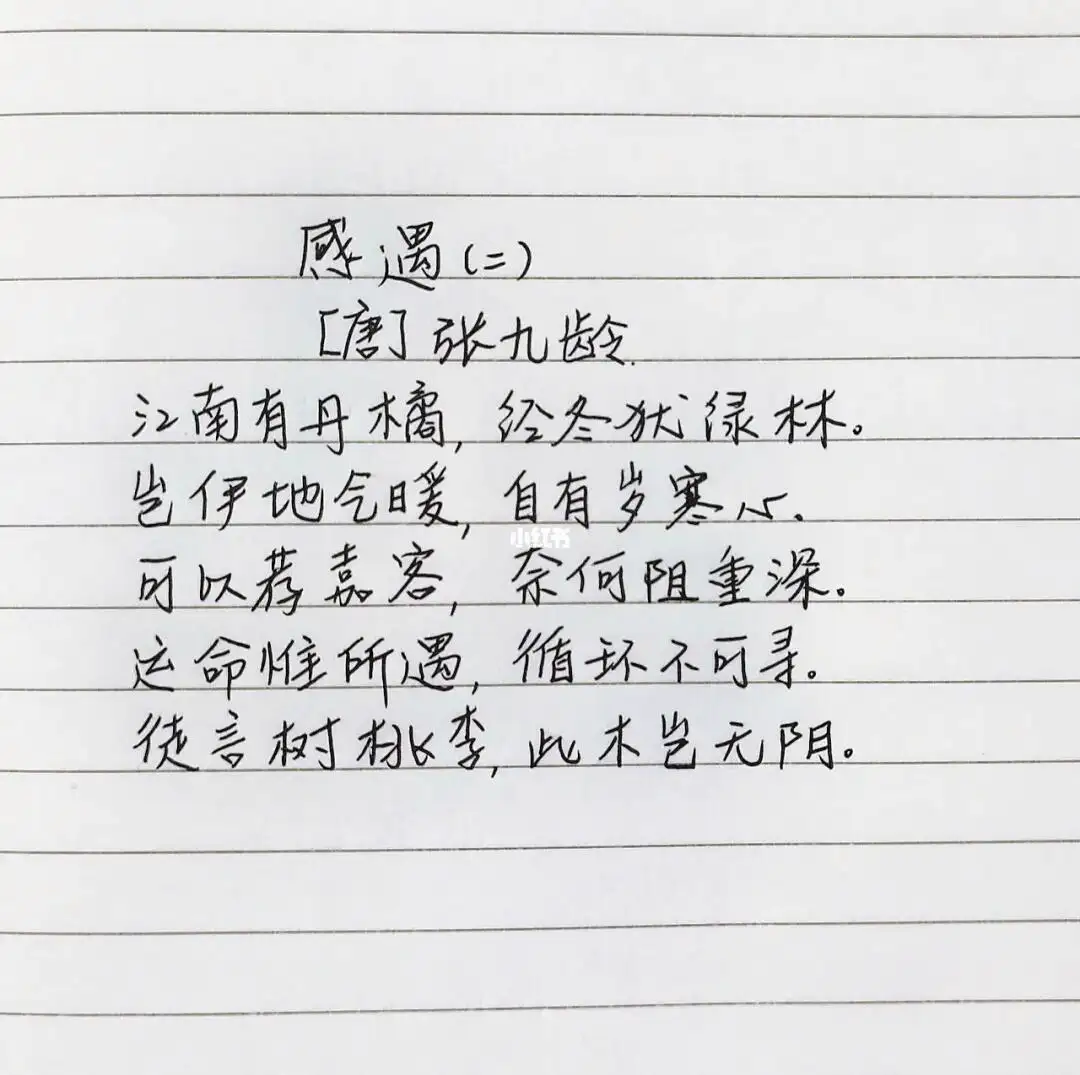 感遇(二)
[唐]张九龄
江南有丹橘,经冬犹绿林。
岂伊地气暖,自有岁寒心、
小红书
可以荐嘉客,奈何阻重深。
运命惟所遇,循环不可寻。
徒言树桃李,此木岂无阴。